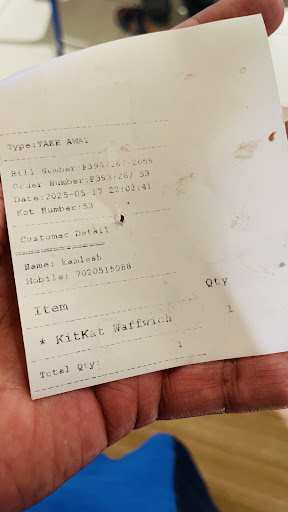 Type:TAKE AWAY
Bill Number:F393/26/-2065
Order Number:F393/26/ 53
Date:2025-05-17 22:02:41
Kot Number:53
Customer Detail
Name: kamlesh
Mobile: 7020515088
Item Qty
* KitKat Waffwich 1
Total Qty: 1